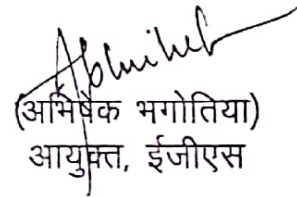 Abhishek
(अभिषेक भगोतिया)
आयुक्त, ईजीएस